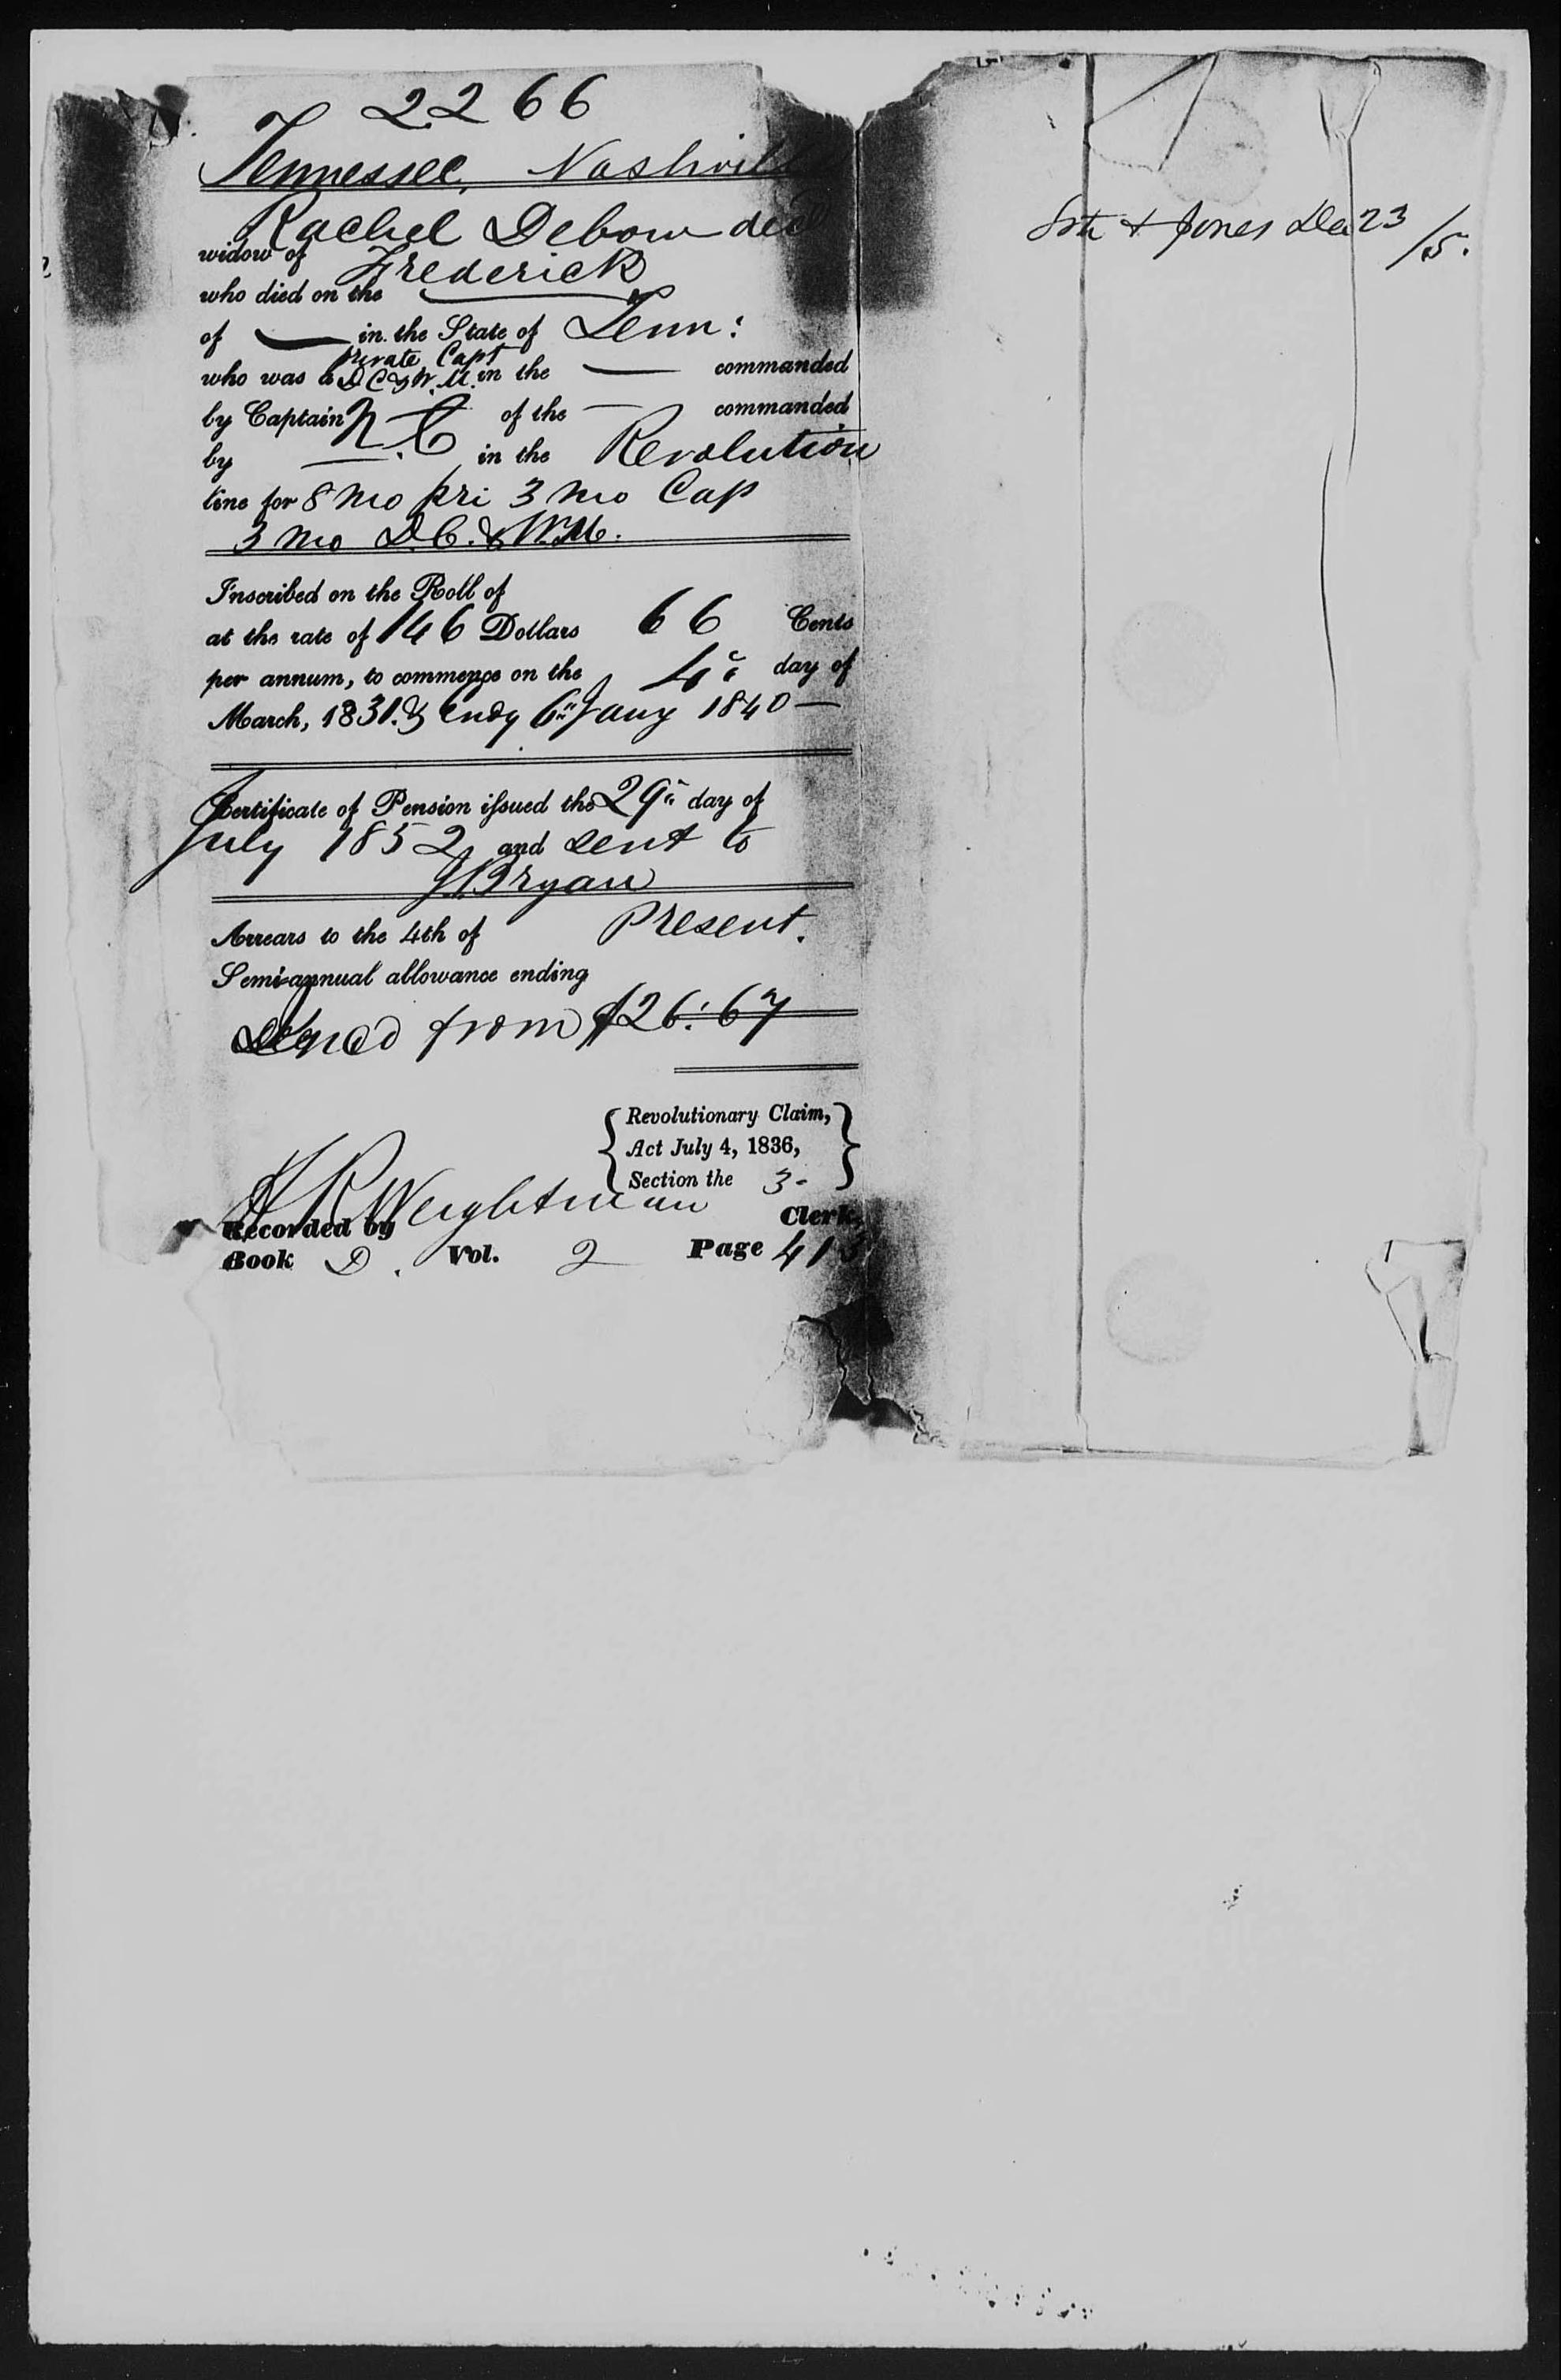 2266
Tennessee, Nashville
Rachel Debow decd
widow of Frederick
who died on the
of — in the State of Tenn:
private Capt
who was a D C & W. M. in the — commanded
by Captain N. C of the — commanded
by — in the Revolution
line for 8 mo pri 3 mo Cap
3 mo D.C. & W.M.
Inscribed on the Roll of
at the rate of 146 Dollars 66 Cents
per annum, to commence on the 4th day of
March, 1831. & endg 6th Jany 1840 —
Certificate of Pension issued the 29th day of
July 1852 and sent to
J Bryan
Arrears to the 4th of present.
Semi-annual allowance ending
from $26:67
Revolutionary Claim,
Act July 4, 1836,
Section the 3-
Recorded by Weightman Clerk,
Book D. Vol. 2 Page 413
& Jones Dec 23
/5.